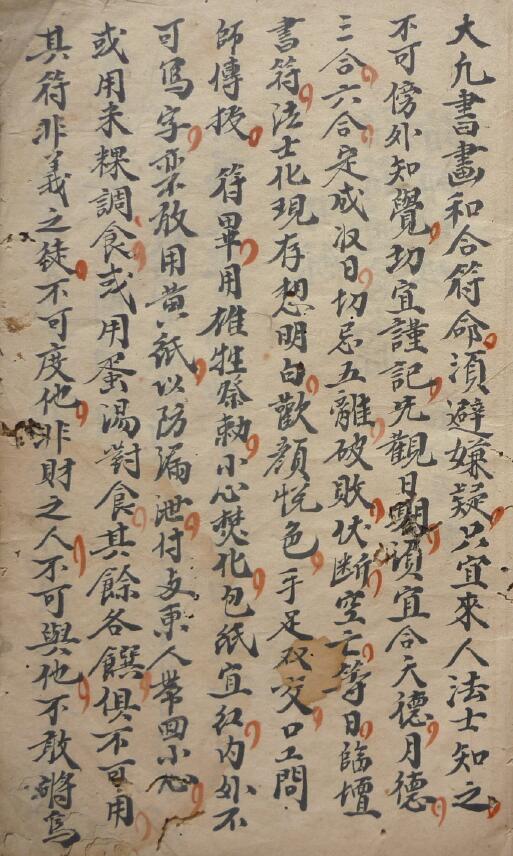 大凡書畵和合符命須避嫌疑只宜來人法士知之
不可傍外知覺切宜謹記先觀日期須宜合天德月德
三合六合定成收日切忌五離破敗伏断空亡等日臨壇
書符法士化現存想明白歡顔悦色手足双交口工問
師傳授符畢用雄牲祭勅小心焚化包紙宜紅内外不
可寫字票放用黄紙以防漏泄付与東人帶回小心
或用末粿調食或用蛋湯對食其餘各饌俱不可用
其符非義之徒不可度他非財之人不可與他不敢將寫